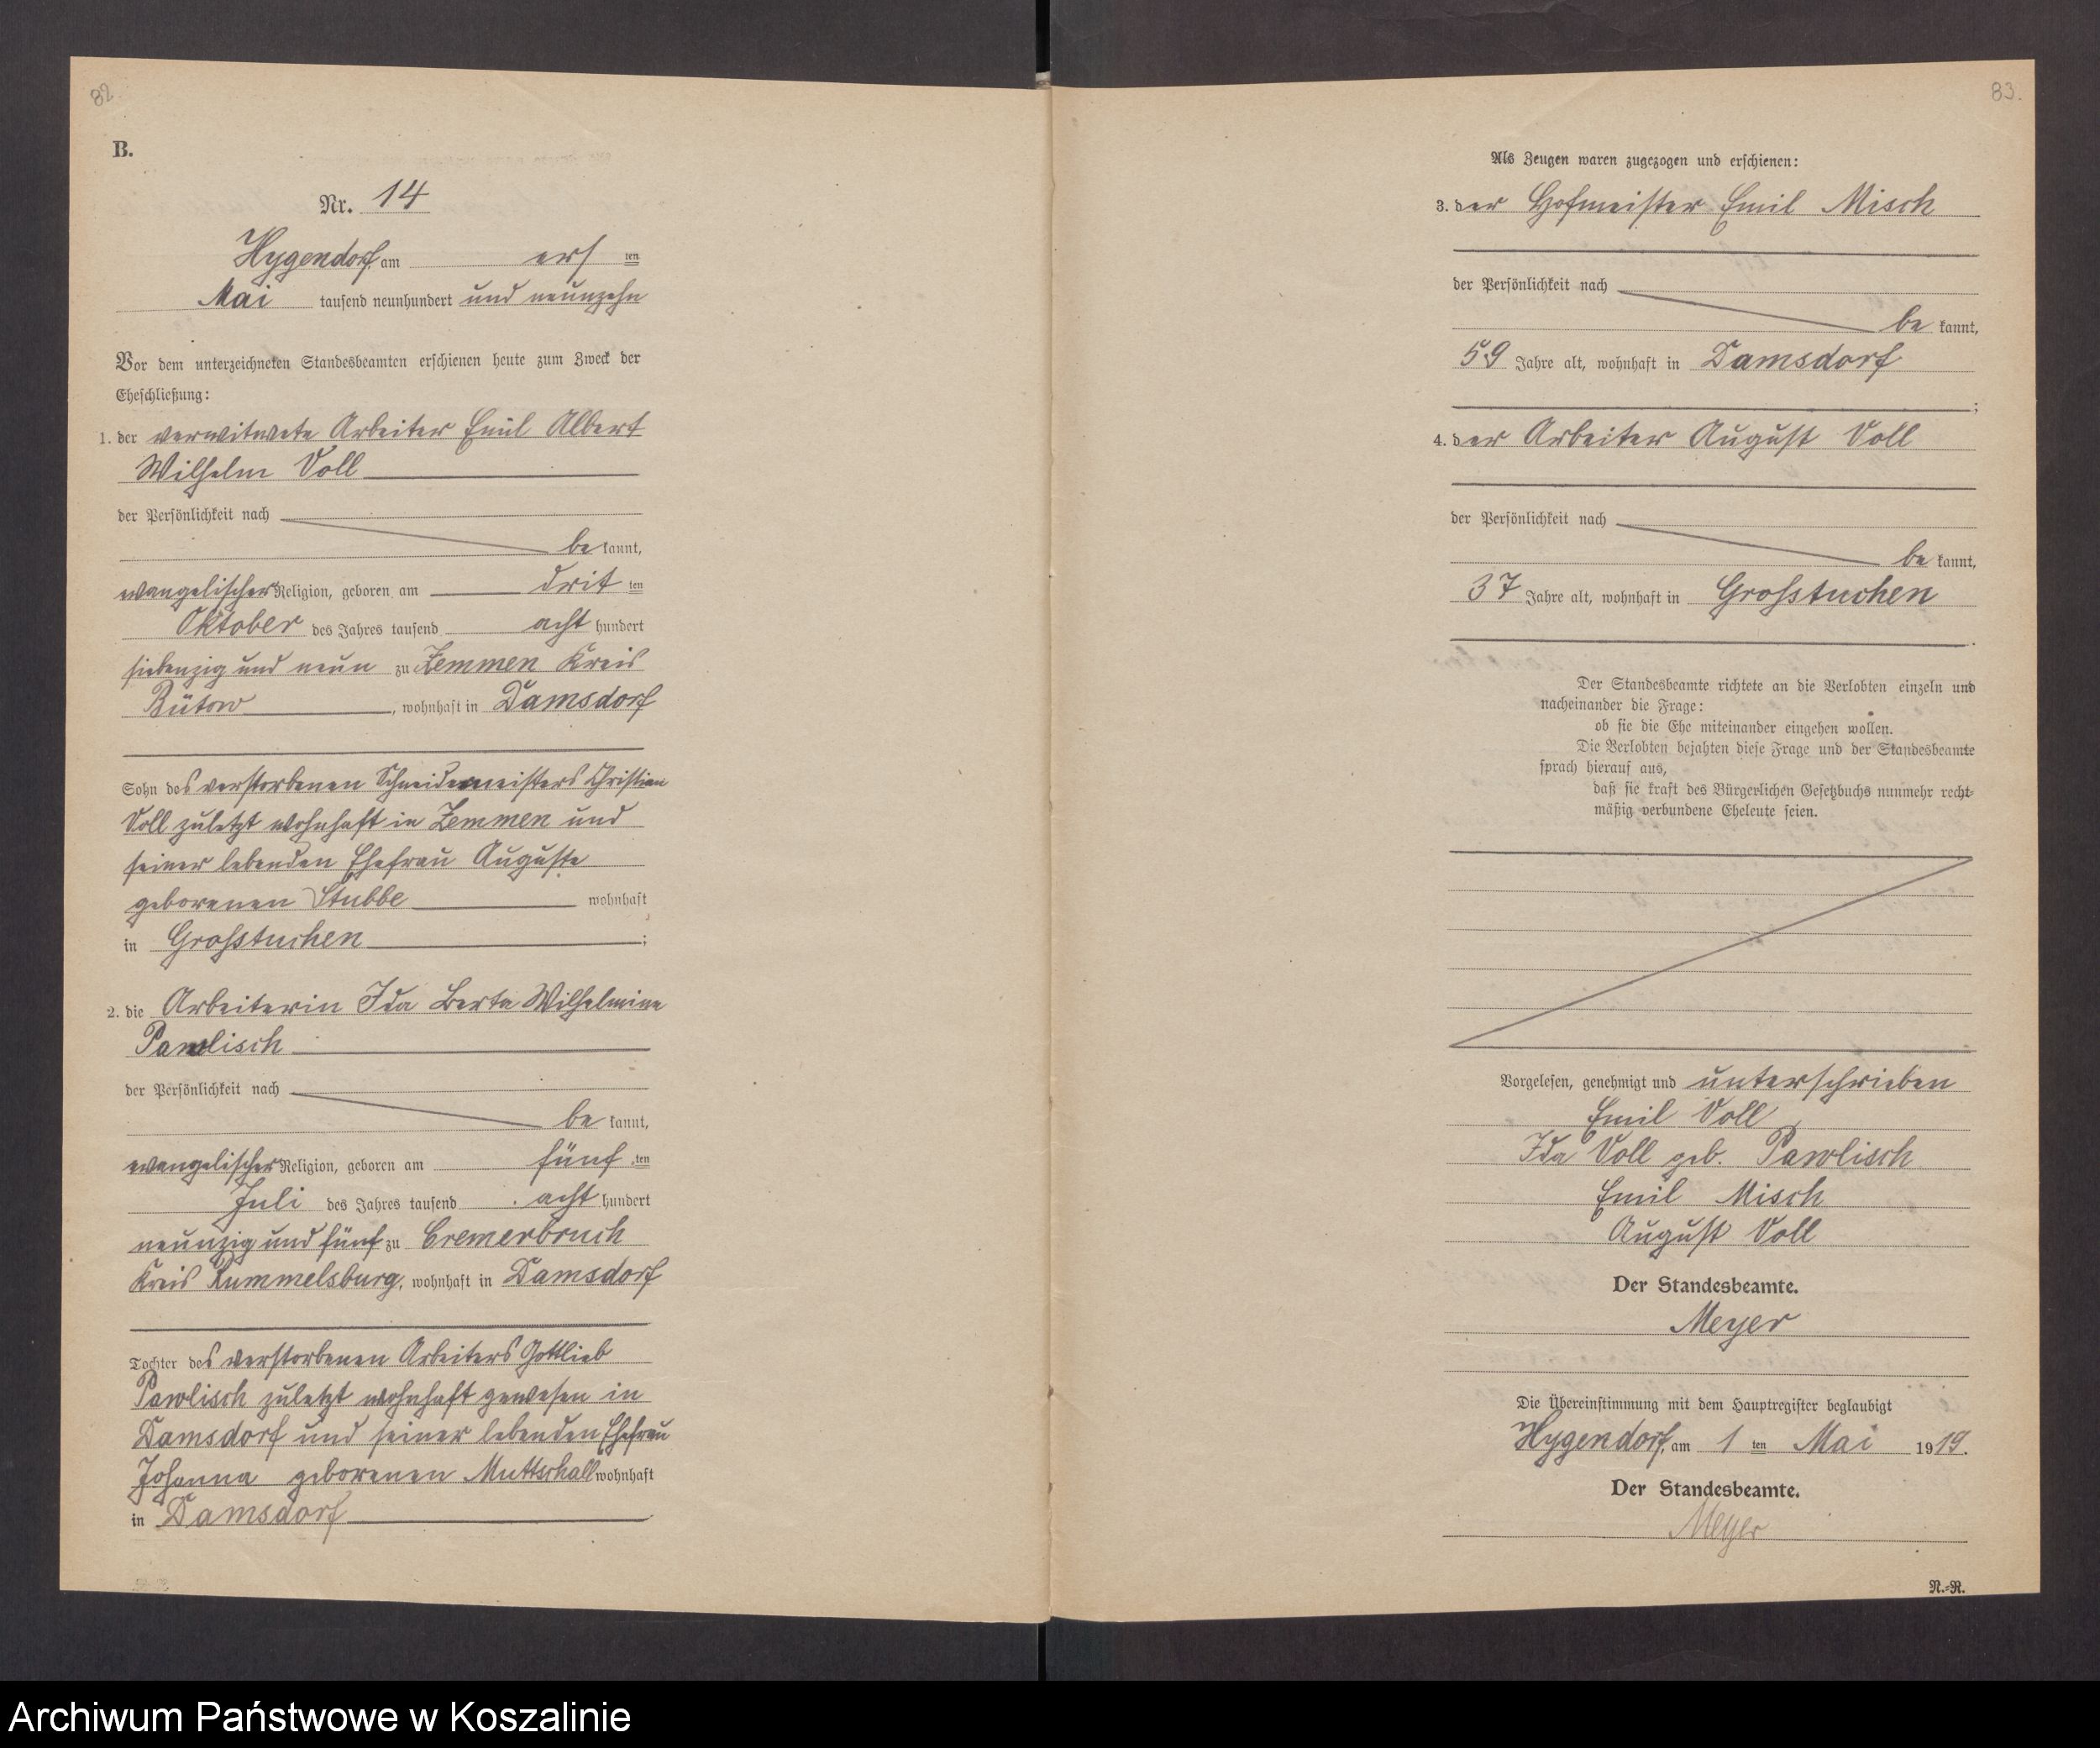 82.
B.
Nr. 14
Hygendorf, am erſ ten
Mai tauſend neunhundert und neunzehn
Vor dem unterzeichneten Standesbeamten erſchienen heute zum Zweck der
Eheſchließung:
1. der verwitwete Arbeiter Emil Albert
Wilhelm Voll
der Perſönlichkeit nach
be kannt,
evangeliſcher Religion, geboren am drit ten
Oktober des Jahres tauſend acht hundert
ſiebenzig und neun zu Zemmen Kreis
Bütow, wohnhaft in Damsdorf
Sohn des verſtorbenen Schneidemeiſters Chriſtian
Voll zuletzt wohnhaft in Zemmen und
ſeiner lebenden Ehefrau Auguſte
geborenen Stubbe wohnhaft
in Groſstuchen ;
2. die Arbeiterin Ida Berta Wilhelmine
Pawlisch
der Perſönlichkeit nach
be kannt,
evangeliſcher Religion, geboren am fünf ten
Juli des Jahres tauſend acht hundert
neunzig und fünf zu Cremerbruch
Kreis Rummelsburg, wohnhaft in Damsdorf
Tochter des verſtorbenen Arbeiters Gottlieb
Pawlisch zuletzt wohnhaft geweſen in
Damsdorf und ſeiner lebenden Ehefrau
Johanna geborenen Muttschall wohnhaft
in Damsdorf
83.
Als Zeugen waren zugezogen und erſchienen:
3. der Hofmeiſter Emil Misch
der Perſönlichkeit nach
be kannt,
59 Jahre alt, wohnhaft in Damsdorf
;
4. der Arbeiter Auguſt Voll
der Perſönlichkeit nach
be kannt,
37 Jahre alt, wohnhaft in Groſstuchen
.
Der Standesbeamte richtete an die Verlobten einzeln und
nacheinander die Frage:
ob ſie die Ehe miteinander eingehen wollen.
Die Verlobten bejahten dieſe Frage und der Standesbeamte
ſprach hierauf aus,
daß ſie kraft des Bürgerlichen Geſetzbuchs nunmehr recht-
mäßig verbundene Eheleute ſeien.
Vorgeleſen, genehmigt und unterschrieben
Emil Voll
Ida Voll geb. Pawlisch
Emil Misch
Auguſt Voll
Der Standesbeamte.
Meyer
Die Übereinſtimmung mit dem Hauptregiſter beglaubigt
Hygendorf, am 1 ten Mai 1919.
Der Standesbeamte.
Meyer
N.-R.
Archiwum Państwowe w Koszalinie